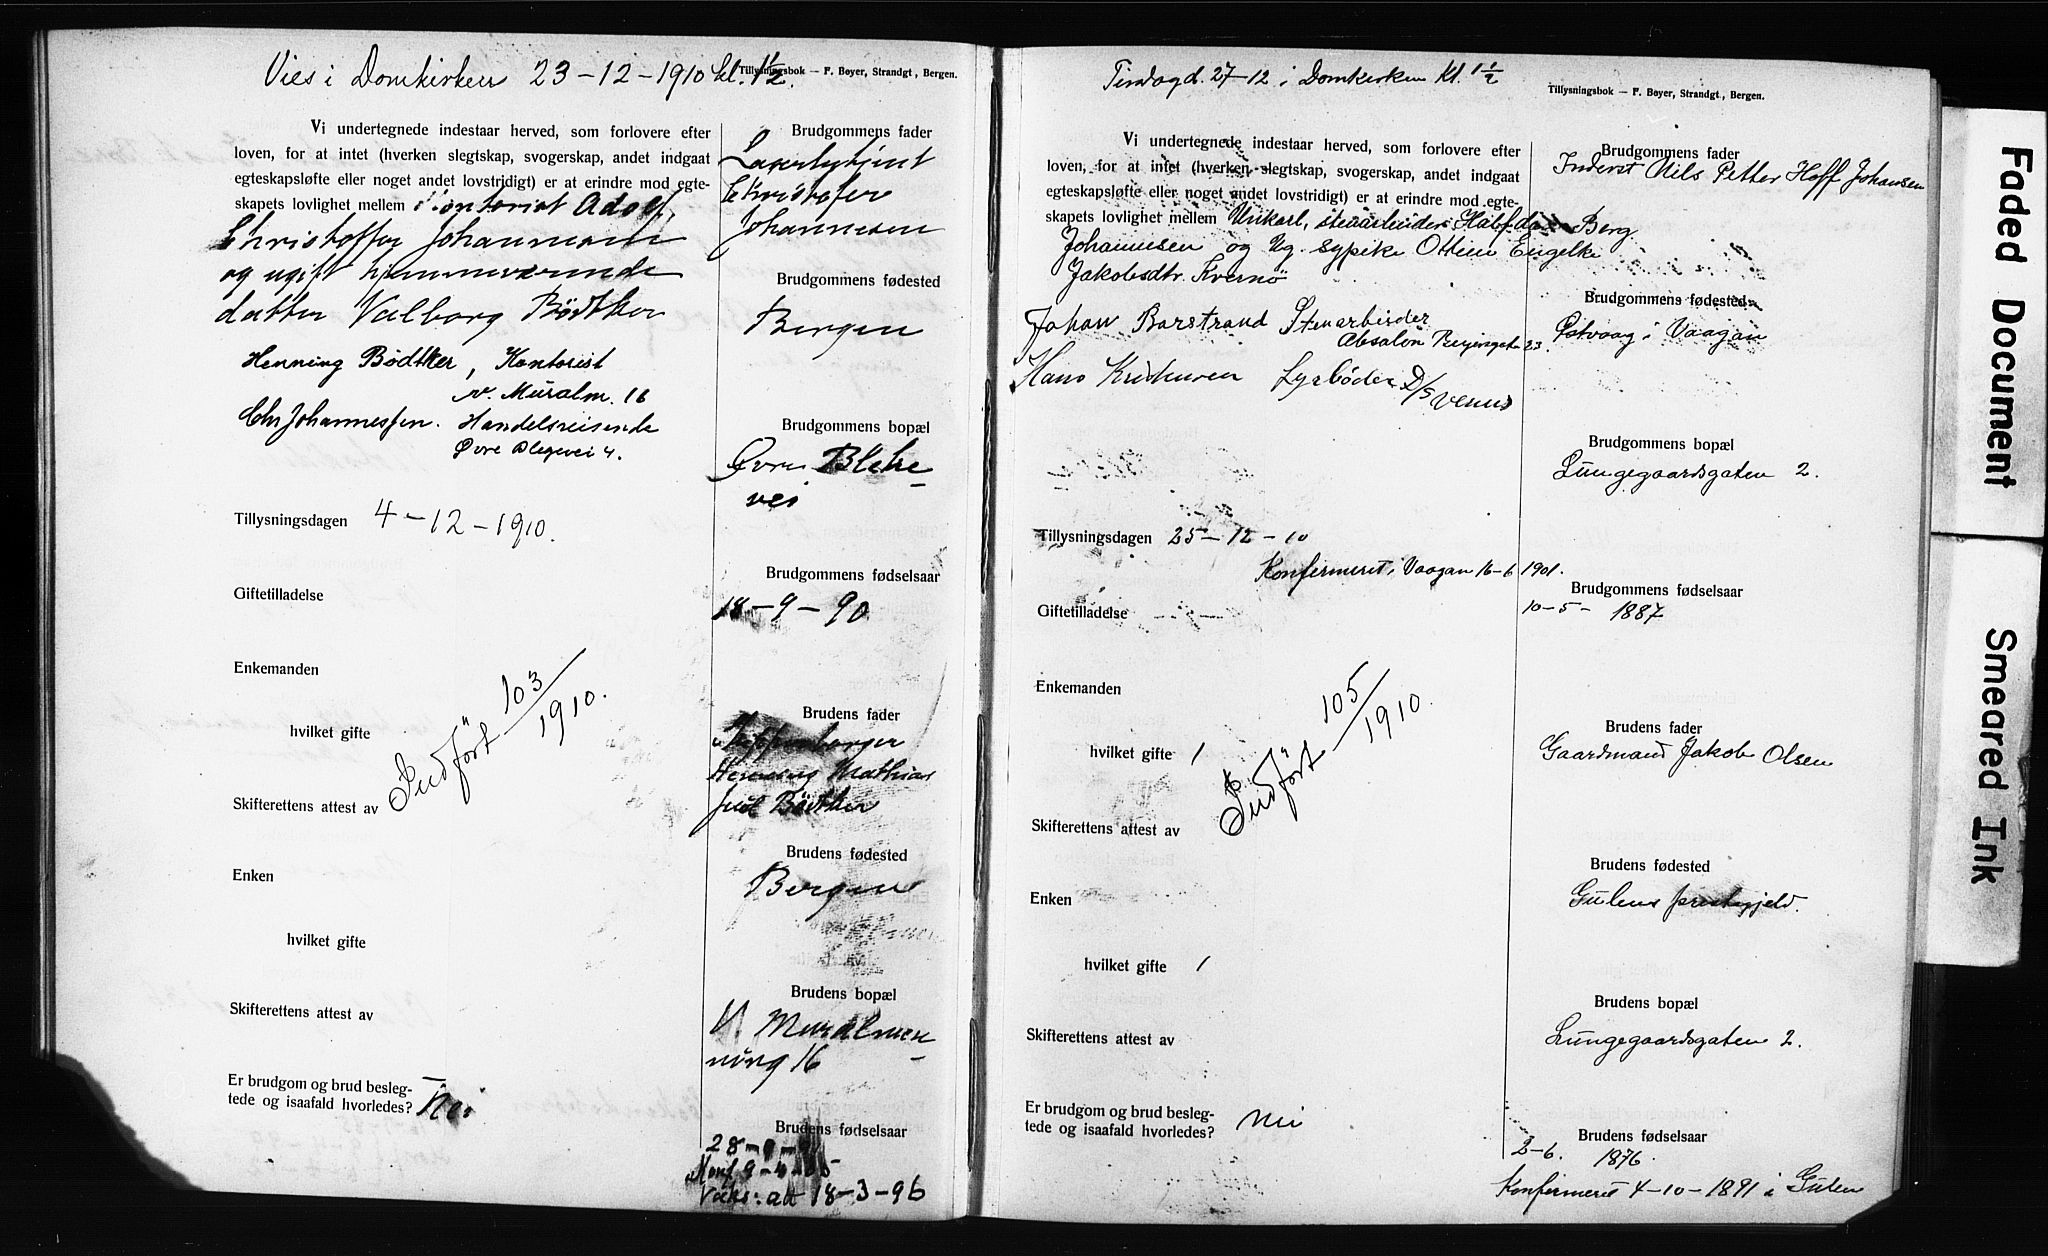 Vies i Domkirken 23-12-1910 kl. 1½.
Tillysningsbok — F. Beyer, Strandgt., Bergen.
Vi undertegnede indestaar herved, som forlovere efter
loven, for at intet (hverken slegtskap, svogerskap, andet indgaat
egteskapsløfte eller noget andet lovstridigt) er at erindre mod egte-
skapets lovlighet mellem Kontorist Adolf
Christoffer Johannesen
og ugift hjemmeværende
datter Valborg Bödtker
Henning Bødtker, Kontorist
N. Muralm. 16
Chr Johannessen. Handelsreisende
Øvre Blegevei 4.
Tillysningsdagen 4-12-1910.
Giftetilladelse
Enkemanden
hvilket gifte
Skifterettens attest av
Indført 103/1910.
Enken
hvilket gifte
Skifterettens attest av
Er brudgom og brud beslegtede
og isaafald hvorledes? Nei
Brudgommens fader
Christofer
Johannesen
Brudgommens fødested
Bergen
Brudgommens bopæl
Øvre Bleke-
vei
Brudgommens fødselsaar
18-9-90
Brudens fader
Henning Mathias
Juul Bödtker
Brudens fødested
Bergen
Brudens bopæl
N. Muralmen-
ning 16
Brudens fødselsaar
Vaks: att 18-3-96
Tirsdag d. 27-12 i Domkirken Kl. 1½
Tillysningsbok — F. Beyer, Strandgt., Bergen.
Vi undertegnede indestaar herved, som forlovere efter
loven, for at intet (hverken slegtskap, svogerskap, andet indgaat
egteskapsløfte eller noget andet lovstridigt) er at erindre mod egte-
skapets lovlighet mellem Unkarl, stenarbeider Halfdan Berg
Johannesen og Ug. sypike Ottine Engelke
Jakobsdtr. Kvernö
Johan Barstrand Stenarbeider
Absalon Beyersgate 23.
Hans Kristensen Fyrböder D/S Venus
Tillysningsdagen 25-12-10
Konfirmeret i Vaagan 16-6 1901.
Giftetilladelse
Enkemanden
hvilket gifte 1
Skifterettens attest av
Indført 105/1910.
Enken
hvilket gifte 1
Skifterettens attest av
Er brudgom og brud beslegtede
og isaafald hvorledes? Nei
Brudgommens fader
Inderst Nils Petter Hoff Johansen
Brudgommens fødested
Østvaag i Vaagan
Brudgommens bopæl
Lungegaardsgaten 2.
Brudgommens fødselsaar
10-5- 1887
Brudens fader
Gaardmand Jakob Olsen
Brudens fødested
Gulens prestegjeld.
Brudens bopæl
Lungegaardsgaten 2.
Brudens fødselsaar
2-6. 1876.
Konfirmeret 4-10-1891 i Gulen
Faded Document
Smeared Ink